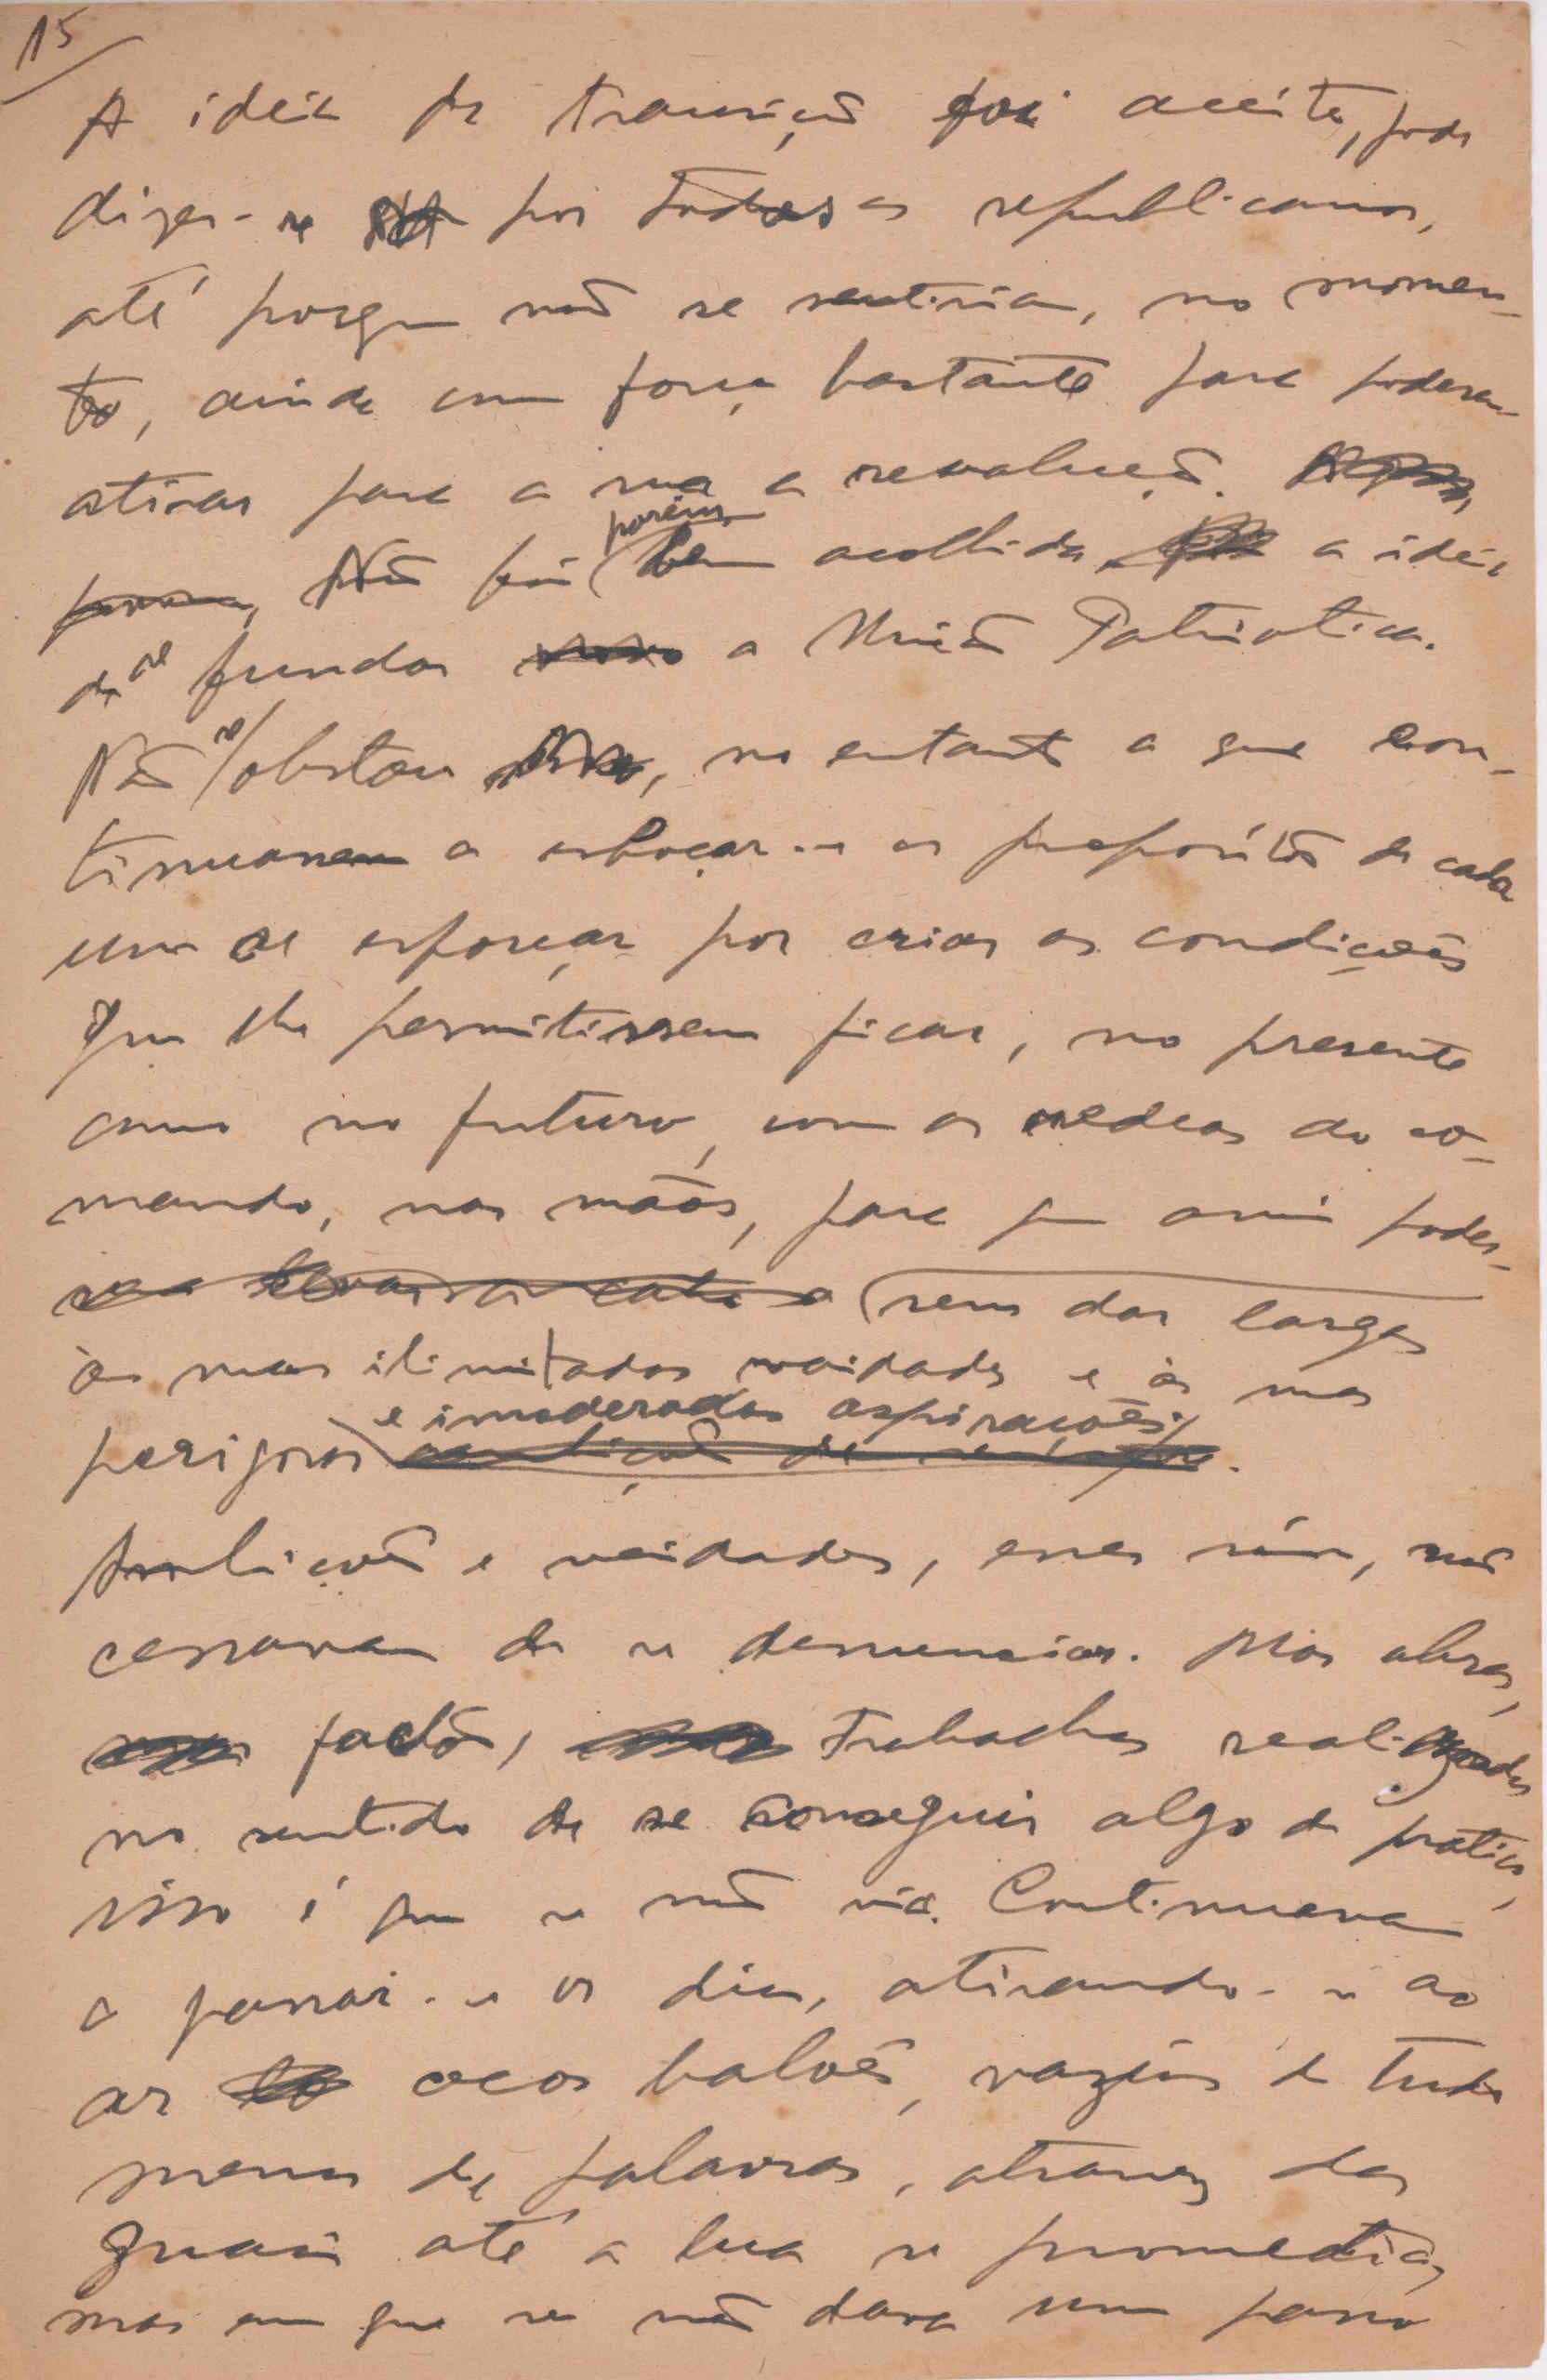 15
A ideia da transição foi aceite, pode
dizer-se por todos os republicanos,
até porque não se sentiria, no momen-
to, ainda com força bastante para poderem
atirar para a rua a revolução.
Não foi porém bem acolhida a ideia
de se fundar a União Patriotica.
Não obstou, no entanto a que con-
tinuarem a esboçar-se os propósitos de cada
um se esforçar por criar as condições
que lhe permitissem ficar, no presente
como no futuro, com as redeas do co-
mando, nas mãos, para que assim poder-
sem dar largas
às suas ilimitadas vaidades e às suas
perigosas e imoderadas aspirações.
Ambições e vaidades, essas sim, não
cessavam de se denunciar. Mas obras,
factos, trabalhos realizados
no sentido de se conseguir algo de pratico,
isso é que se não via. Continuava
a passar-se os dias, atirando-se ao
ar ocos balões, vazios de tudo
menos de palavras, atravez das
quais até a lua se prometia,
mas em que se não dava um passo